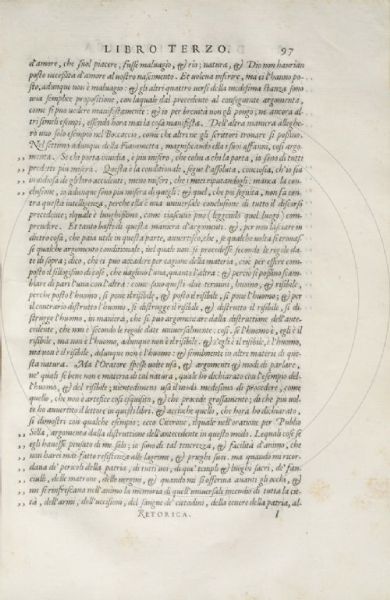 LIBRO TERZO. 97
d'amore, che suol piacere, fusse malvagio, & rio; natura, & Dio non havrian
posto necessità d'amore al nostro nascimento. Et voleva inferire, ma ci l'hanno po-
sto, adunque non è malvagio: & gli altri quattro versi della medesima stanza sono
una semplice propositione, con laquale dal precedente al conseguente argomenta,
come si può vedere manifestamente: & io per brevità non gli pongo; nè ancora al-
tri simili esempi, essendo hora mai la cosa manifesta. Dell'altra maniera alleghe-
rò uno solo esempio nel Boccaccio, come che altri ne gli scrittori trovare si possino.
Nel settimo adunque della Fiammetta, magnificando ella i suoi affanni, così argo-
menta. Se chi porta invidia, è più misero, che colui a chi la porta, io sono di tutti
predetti più misera. Questa è la conditionale, segue l'assoluta,
clusione, io adunque sono più misera di quegli: & quel, che poi seguita, non fa con-
tra questa intelligenza, perche ella è una universale conclusione di tutto il discorso
precedente; ilquale è lunghissimo, come ciascuno può (leggendo quel luogo) com-
prendere. Et tanto basti di questa maniera d'argomenti. &, per non lasciare in
dietro cosa, che paia utile in questa parte, avvertisco, che se qualche volta si troves-
se qualche argomento conditionale, nel quale non si procedesse secondo le regole da-
te di sopra; dico, che ciò può accadere per cagione della materia, cioè per essere com-
posto il sillogismo di cose, che vagliono l'una, quanto l'altra: & perciò si possono scam-
biar di pari l'una con l'altra: come sono questi due termini, huomo, & risibile,
perche posto l'huomo, si pone il risibile, & posto il risibile, si pone l'huomo; & per
il contrario distrutto l'huomo, si distrugge il risibile, & distrutto il risibile, si di-
strugge l'huomo, in maniera, che si può argomentare dalla distruttione dell'ante-
cedente, che non è secondo le regole date universalmente: così, se l'huomo è, egli è il
risibile, ma non è l'huomo, adunque non è il risibile, & s'egli è il risibile, è l'huomo,
ma non è il risibile, adunque non è l'huomo: & similmente in altre materie di que-
sta natura. Ma l'Oratore spesse volte usa, & argomenti & modi di parlare,
ne' quali se bene non è materia di tal natura, quale ho dichiarato con l'esempio del-
l'huomo, & del risibile, nientedimeno usa il modo medesimo di procedere, come
quello, che non è artefice così esquisito, & che procede grossamente; di che più vol-
te ho avvertito il lettore in questi libri. & accioche quello, che hora ho dichiarato,
si dimostri con qualche esempio; ecco Cicerone, ilquale nell'oratione per Publio
Silla, argomenta dalla distruttione dell'antecedente in questo modo. Lequali cose se
egli havesse pensato di me solo; io sono di tal tenerezza, & facilità d'animo, che
non havrei mai fatto resistenza alle lagrime, & prieghi suoi. ma quando mi ricor-
dava de' pericoli della patria, di tutti voi, di que' tempii & luoghi sacri, de' fan-
ciulli, delle matrone, delle vergini, & quando mi si offeriva avanti gli occhi, &
mi si rinfrescava nell'animo la memoria di quell'universale incendio di tutta la cit-
tà, dell'armi, dell'uccisioni, del sangue de' cittadini, della cenere della patria, al-
RETORICA. I